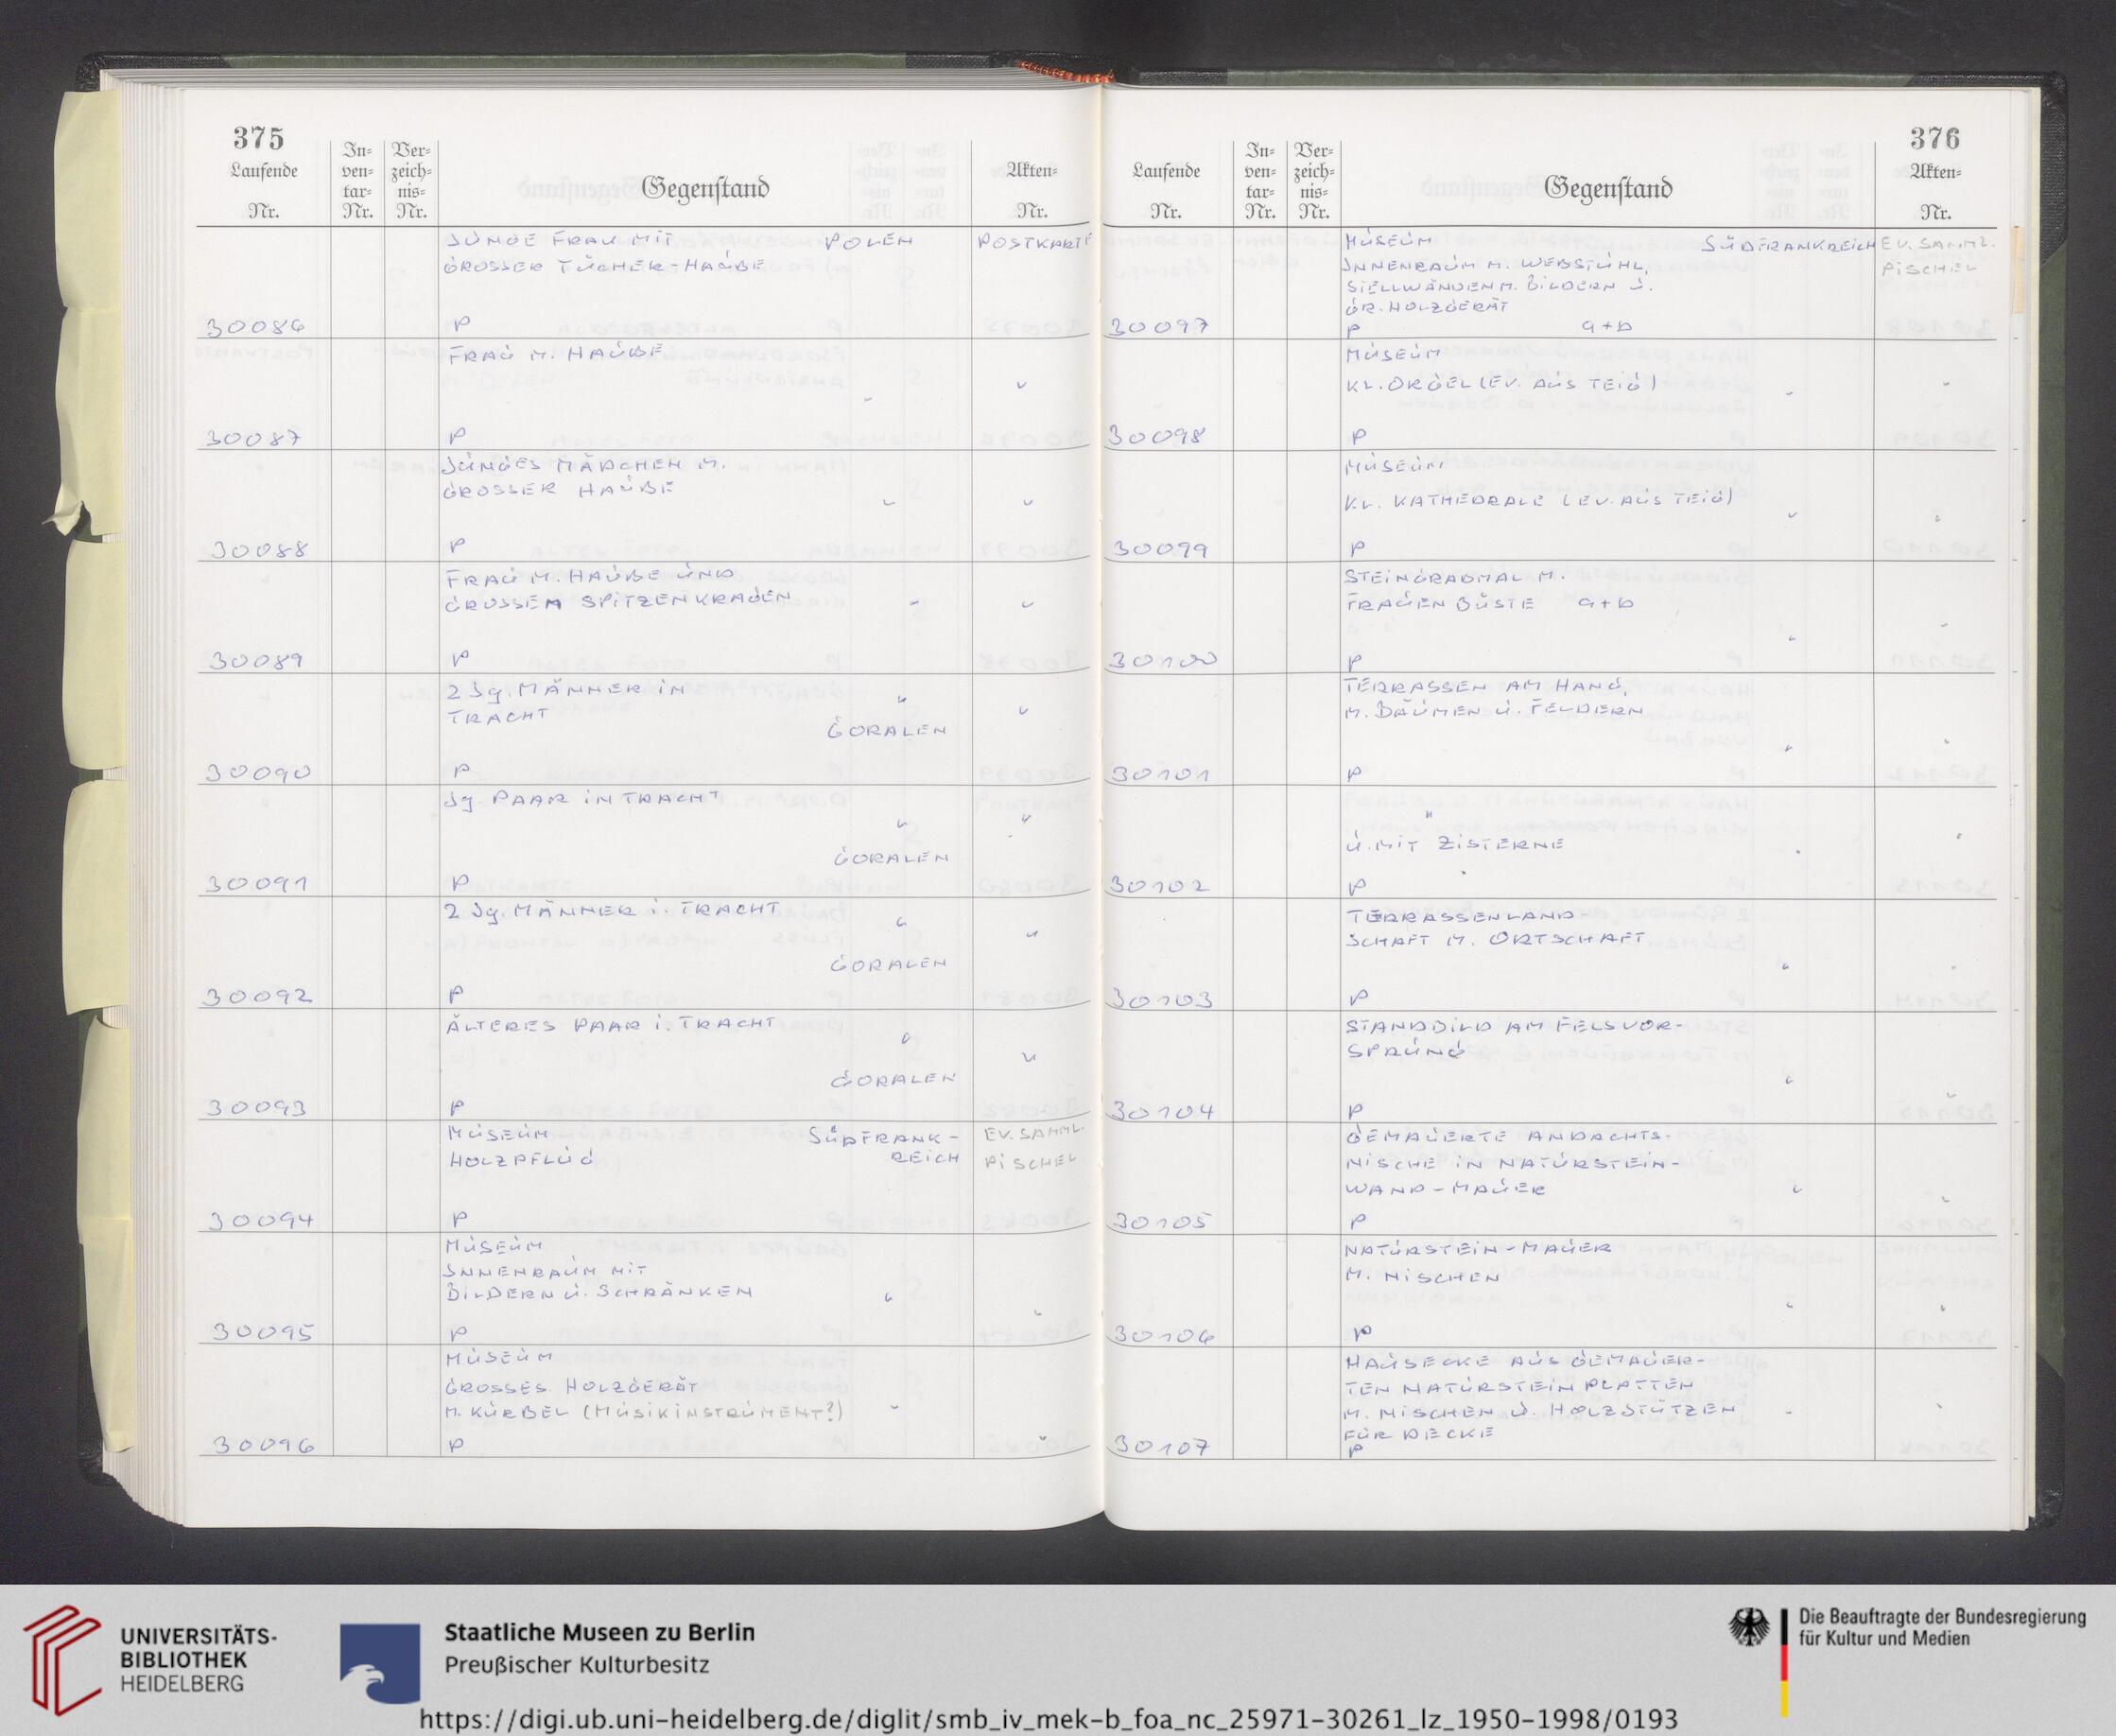 375
Laufende Nr.
In-ven-tar-Nr.
Ver-zeich-nis-Nr.
Gegenstand
Akten-Nr.
JUNGE FRAU MIT POLEN POSTKARTE
GROSSER TÜCHER-HAUBE
30086 P
FRAU M. HAUBE
" "
30087 P
JUNGES MÄDCHEN M.
GROSSER HAUBE " "
30088 P
FRAU M. HAUBE UND
GROSSEM SPITZENKRAGEN " "
30089 P
2 Jg. MÄNNER IN "
TRACHT GORALEN "
30090 P
Jg PAAR IN TRACHT
" "
GORALEN
30091 P
2 Jg. MÄNNER i. TRACHT "
"
GORALEN
30092 P
ÄLTERES PAAR i. TRACHT
" "
GORALEN
30093 P
MUSEUM SÜDFRANK- EV. SAMML.
HOLZPFLUG REICH PISCHEL
30094 P
MUSEUM
INNENRAUM MIT
BILDERN U. SCHRÄNKEN " "
30095 P
MUSEUM
GROSSES HOLZGERÄT
M. KURBEL (MUSIKINSTRUMENT?) "
30096 P "
376
Laufende Nr.
In-ven-tar-Nr.
Ver-zeich-nis-Nr.
Gegenstand
Akten-Nr.
MUSEUM SÜDFRANKREICH EV. SAMML.
INNENRAUM M. WEBSTUHL, PISCHEL
STELLWÄNDEN M. BILDERN U.
GR. HOLZGERÄT
30097 P a+b
MUSEUM
KL. ORGEL (EV. AUS TEIG) " "
30098 P
MUSEUM
KL. KATHEDRALE (EV. AUS TEIG)
" "
30099 P
STEINGRABMAL M.
FRAUENBÜSTE a+b
" "
30100 P
TERRASSEN AM HANG,
M. BÄUMEN U. FELDERN
" "
30101 P
"
U. MIT ZISTERNE " "
30102 P
TERRASSENLAND-
SCHAFT M. ORTSCHAFT
" "
30103 P
STANDBILD AM FELSVOR-
SPRUNG
" "
30104 P
GEMAUERTE ANDACHTS-
NISCHE IN NATURSTEIN-
WAND-MAUER " "
30105 P
NATURSTEIN-MAUER
M. NISCHEN
" "
30106 P
HAUSECKE AUS GEMAUER-
TEN NATURSTEINPLATTEN
M. NISCHEN U. HOLZSTÜTZEN " "
FÜR DECKE
30107 P
UNIVERSITÄTS-
BIBLIOTHEK
HEIDELBERG
Staatliche Museen zu Berlin
Preußischer Kulturbesitz
Die Beauftragte der Bundesregierung
für Kultur und Medien
https://digi.ub.uni-heidelberg.de/diglit/smb_iv_mek-b_foa_nc_25971-30261_lz_1950-1998/0193